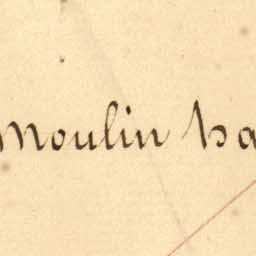 Moulin ha